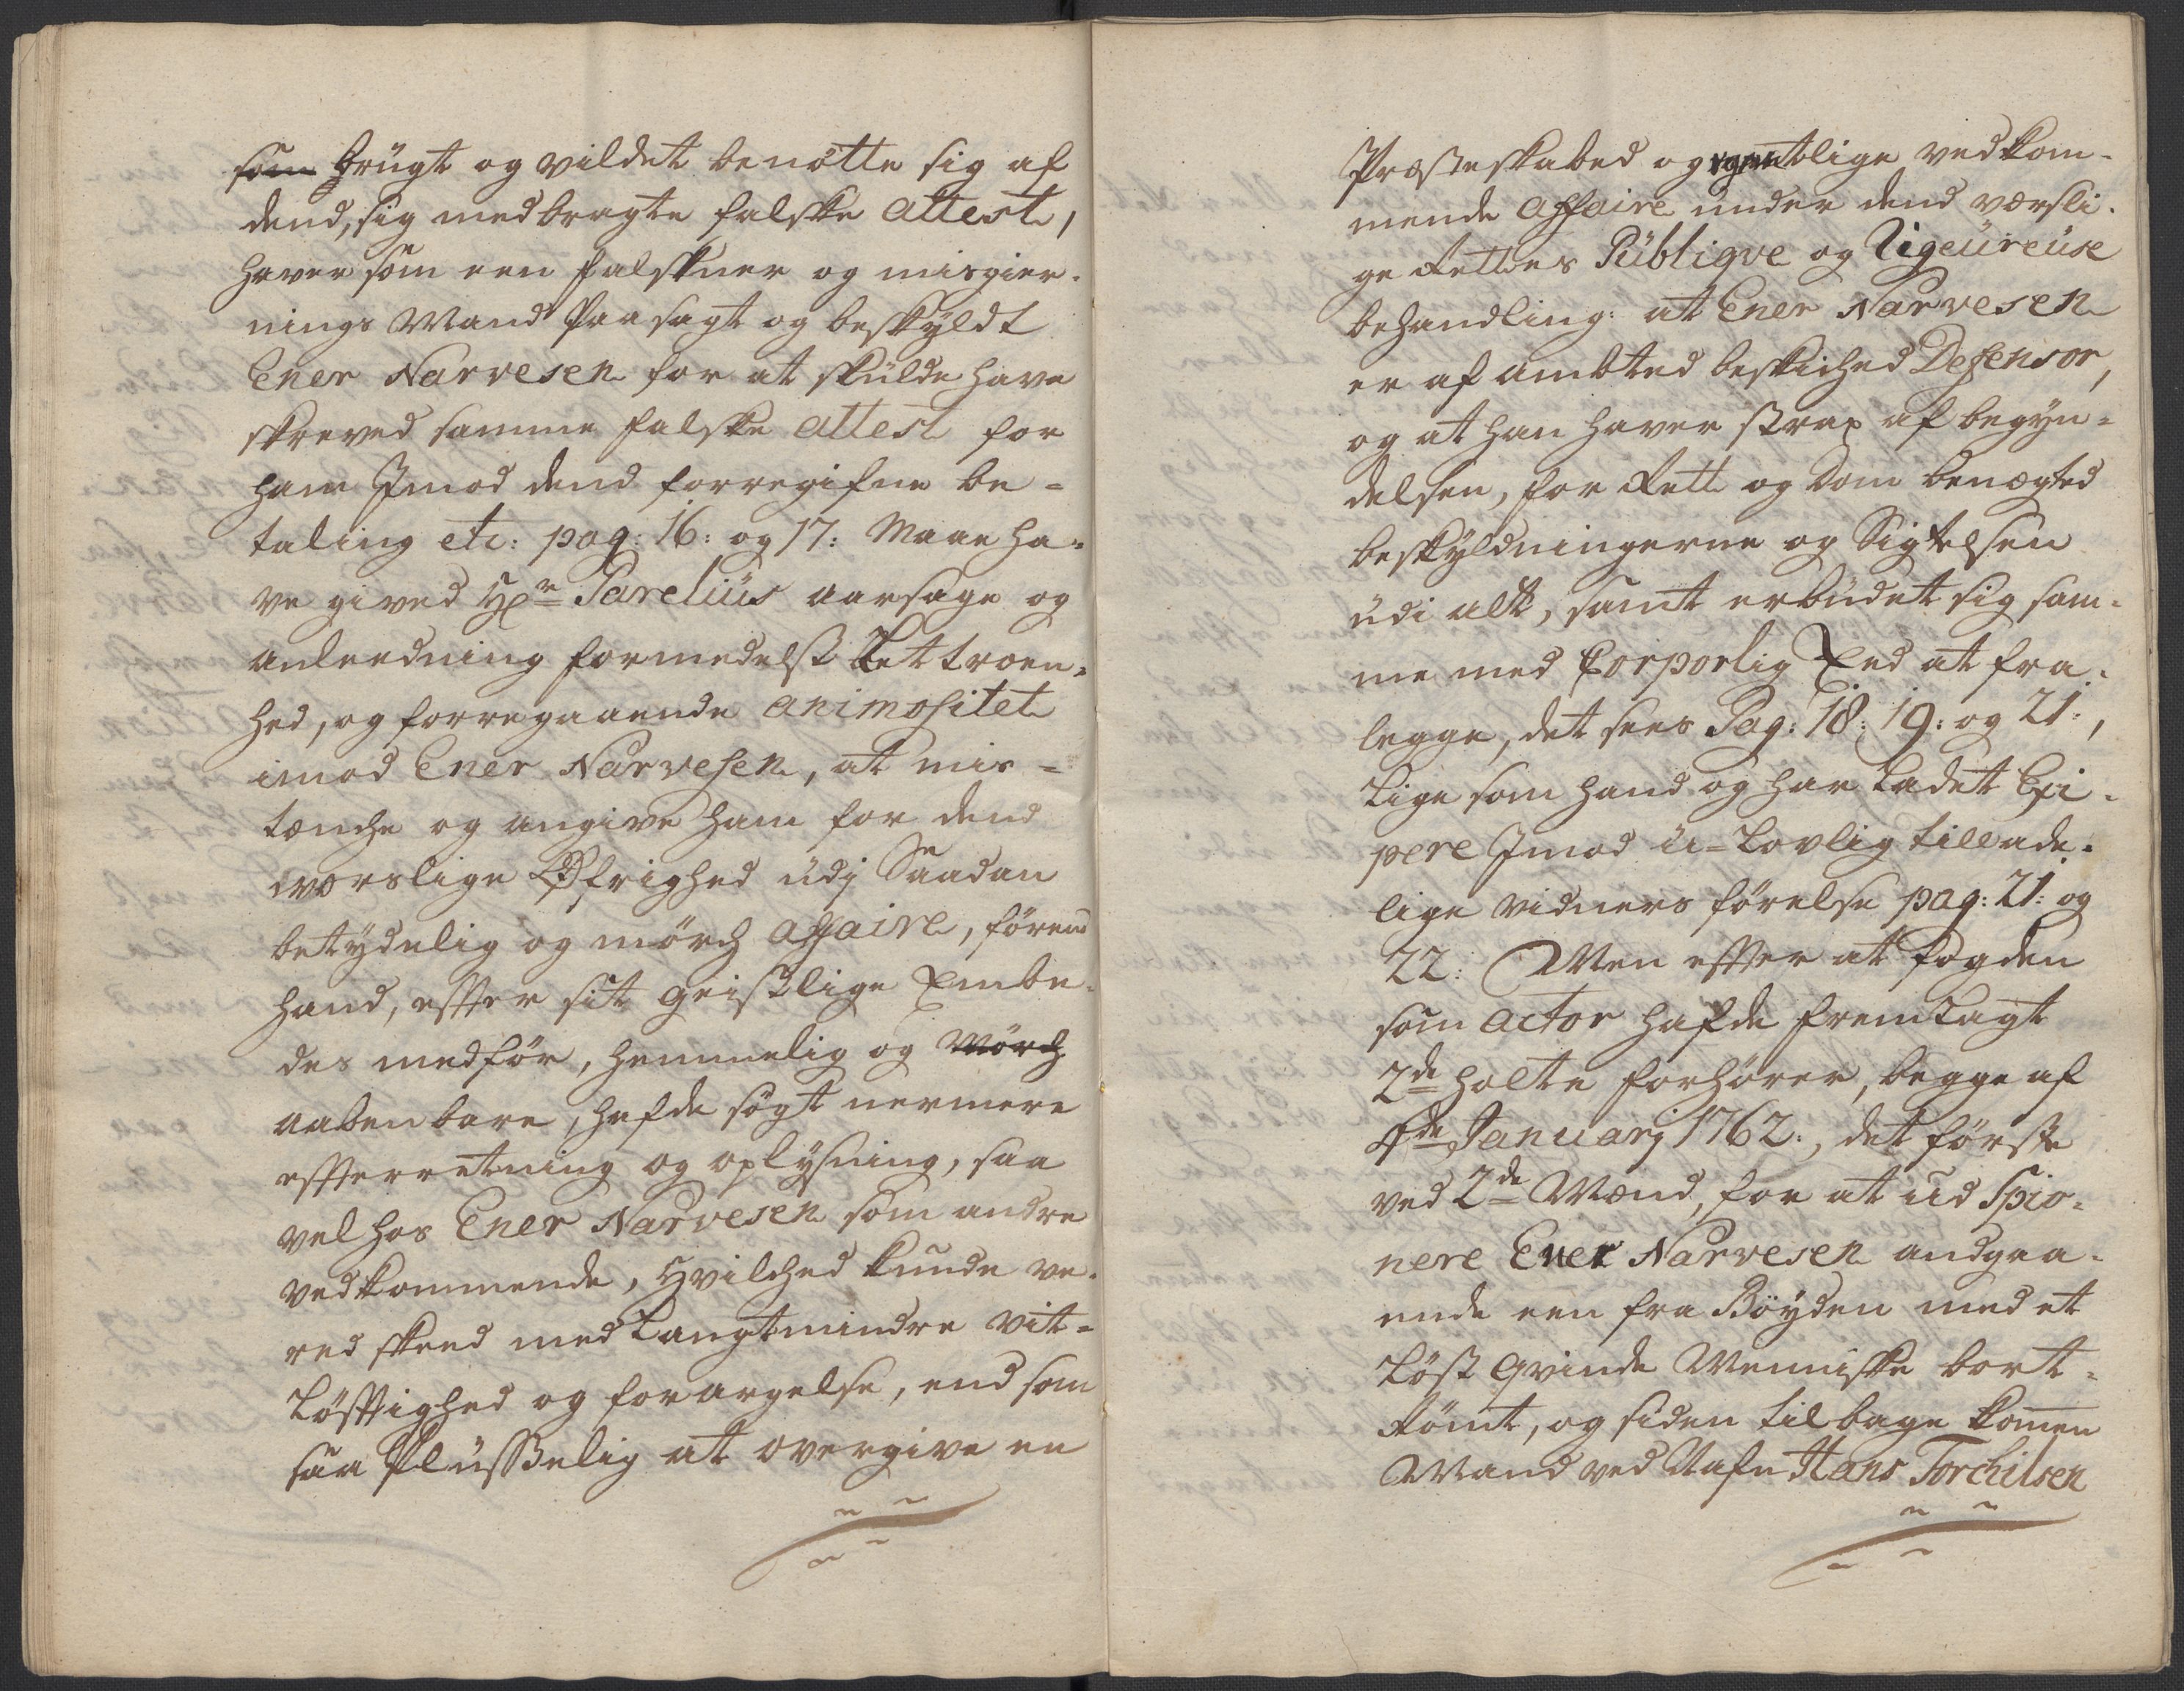 som brügt og vildet benötte sig af
dend, sig medbragte falske attest,
haver som een falskner og misgier-
nings Mand Paasagt og beskÿldt
Ener Narvesen for at skülde have
skreved samme falske attest for
ham Imod dend forregifne be-
taling etc: pag: 16: og 17: Maae ha-
ve gived Hr Parelius aarsage og
anleedning formedelst Let troen-
hed, og forregaaende animositet
imod Ener Narvesen, at mis-
tænche og angive ham for dend
værslige Øfrighed üdj Saadan
betÿdelig og mörch affaire, förend
hand, effter sit geistlige Embe-
des medför, hemmelig og Mörch
aabenbare, hafde sögt nermere
effterretning og oplÿsning, saa
vel hos Ener Narvesen som andre
vedkommende, Hvilched kunde ve-
red skeed med Langt mindre vit-
Löfftighed og forargelse, end som
saa Plüsselig at overgive en
Præsteskabed og egentlige vedkom-
mende affaire under dend værsli-
ge Rettes Püblique og Rigeüreüse
behandling: at Ener Narvesen
er af ambted beskiched Defensor,
og at han haver strax af begÿn-
delsen, for Rett og Dom benægted
beskÿldningerne og Sigtelsen
üdi alt, samt erbudet sig sam-
me med Corporlig Eed at fra-
legge, det sees Pag: 18: 19: og 21:,
Lige som hand og har Ladet Exi-
pere Imod ü-Lovlig tillade-
lige vidners förelse pag: 21: og
22: Men effter at fogden
som actor hafde fremlagt
2de holte forhörer, begge af
4de Januarj 1762:, det förste
ved 2de Mænd, for at ud Spio-
nere Ener Narvesen andgaa-
ende een fra Böÿden med et
Löst Qvinde Menniske bort-
Römt, og siden tilbage komen
Mand ved Nafn Hans Torchilsen